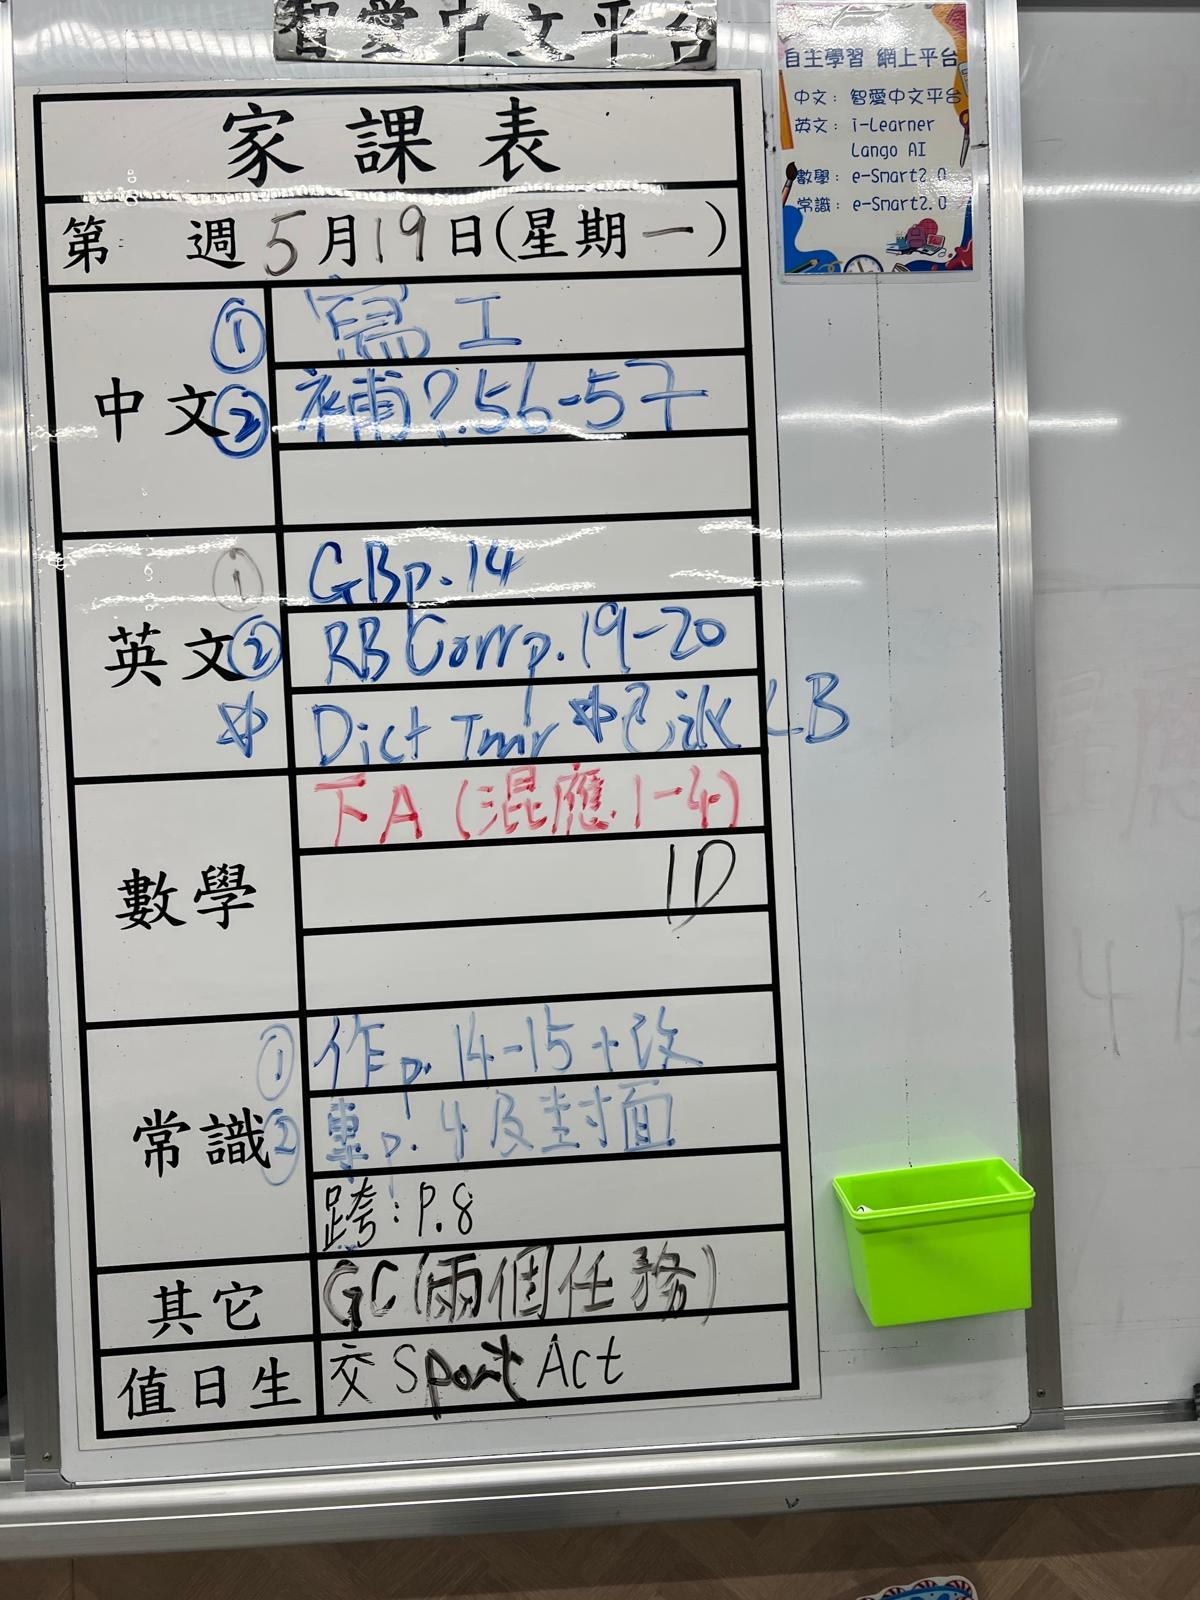 智愛中文平台
自主學習 網上平台
中文：智愛中文平台
英文：i-Learner
Lango AI
數學：e-Smart2.0
常識：e-Smart2.0
家課表
第 週 5月19日(星期一)
中文
① 寫工
② 補P.56-57
英文
① GB p.14
② RB Corr p.19-20
☆ Dict Tmr ☆已派 LB
數學
下A (混應.1-4)
1D
常識
① 作p.14-15+改
② 專p.4及封面
跨：P.8
其它
GC(兩個任務)
值日生
交 Sport Act